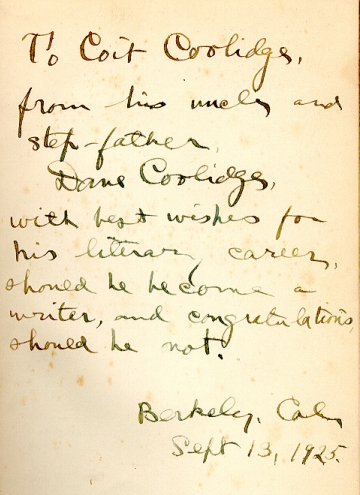 To Coit Coolidge,
from his uncle and
step-father,
Dane Coolidge,
with best wishes for
his literary career,
should he become a
writer, and congratulations
should he not.
Berkeley, Cal.
Sept 13, 1925.